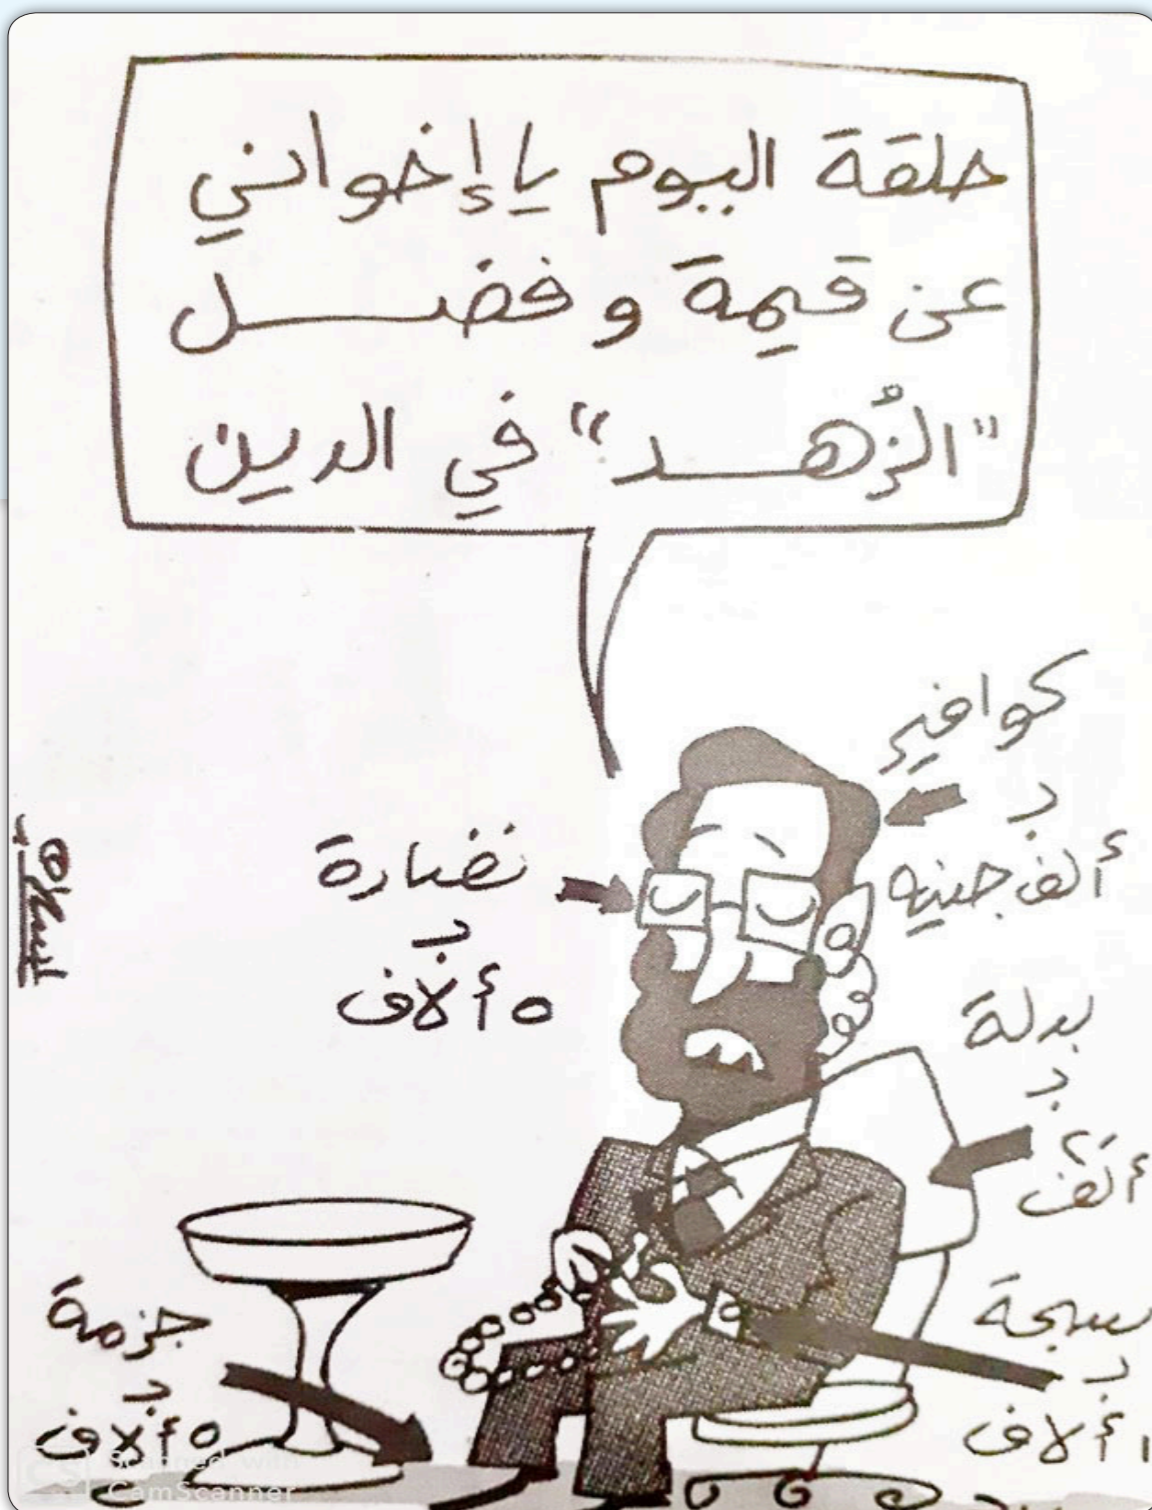 حلقة اليوم يا إخواني
عن قيمة و فضل
"الزُهد" في الدين
كوافير
بـ
ألف جنيه
نضارة
بـ
٥ ألاف
بدلة
بـ
ألف
سبحة
بـ
ألاف
جزمة
بـ
٥ ألاف
CS Scanned with
CamScanner